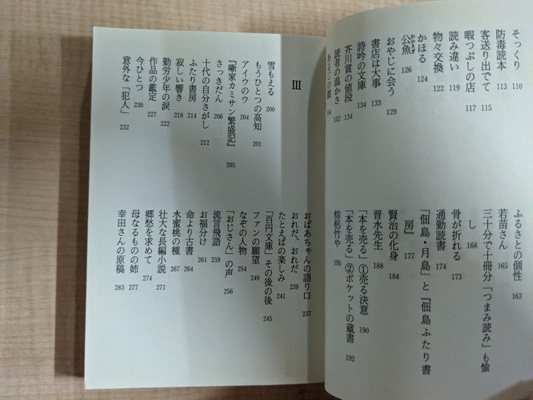 そっくり 110
防毒読本 113
客送り出でて 115
暇つぶしの店 117
読み違い 119
物々交換 122
かほる 124
公魚 126
おやじに会う 129
書店は大事 133
詩吟の文庫 134
芥川賞の値段 134
読者の温かさ 152
ふるさとの個性 163
若苗さん 165
三十分で十冊分「つまみ読み」も愉
し 168
骨が折れる 173
通勤読書 174
『佃島・月島』と『佃島ふたり書
房』 177
賢治の化身 184
晋水先生 188
「本を売る」①売る決意 190
「本を売る」②ポケットの蔵書 192
棕梠竹や 195
Ⅲ
雪もえる 200
もうひとつの高知 201
アイウのウ 204
『噺家カミサン繁盛記』 205
さっきだん 206
十代の自分さがし 212
ふたり書房 214
寂しい響き 218
勤労少年の涙 222
作品の鑑定 227
今ひとつ 230
意外な「犯人」 232
おばあちゃんの語り口 237
おれだ、おれだ 239
たとえばの楽しみ 241
「百円文庫」その後の後 245
ファンの願望 249
なぞの人物 254
「おじさん」の声 256
流言飛語 258
お福分け 261
命より古書 264
水蜜桃の種 267
壮大な長編小説 271
郷愁を求めて 274
母なるものの姉 277
幸田さんの原稿 283